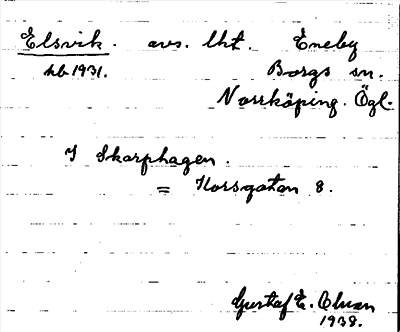 Elsvik. avs. lht. Eneby
hb 1931. Borgs sn.
Norrköping. Ögl.
I Skarphagen.
= Korsgatan 8.
Gustaf E. Olsson
1938.